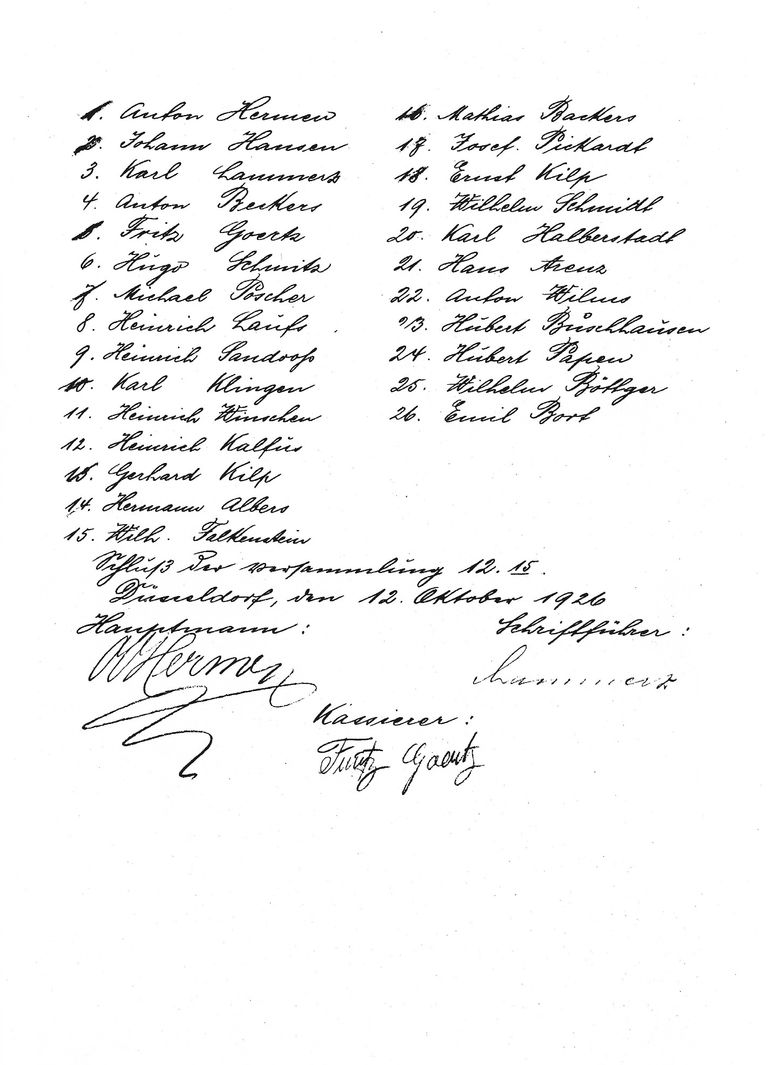 1. Anton Hermen
2. Johann Hansen
3. Karl Lammerz
4. Anton Beckers
5. Fritz Goertz
6. Hugo Schmitz
7. Michael Pöscher
8. Heinrich Laufs
9. Heinrich
10. Karl Klingen
11. Heinrich Winschen
12. Heinrich Kalfus
13. Gerhard Kilp
14. Hermann Albers
15. Wilh. Falkenstein
16. Mathias Backers
17. Josef. Pickardt
18. Ernst Kilp
19. Wilhelm Schmidt
20. Karl Halberstadt
21. Hans Arenz
22. Anton Wilms
23. Hubert Buschhausen
24. Hubert Papen
25. Wilhelm Böttger
26. Emil Bort
Schluß der Versammlung 12.15.
Düsseldorf, den 12. Oktober 1926
Hauptmann: Schriftführer:
A Hermen Lammerz
Kassierer:
Fritz Goertz